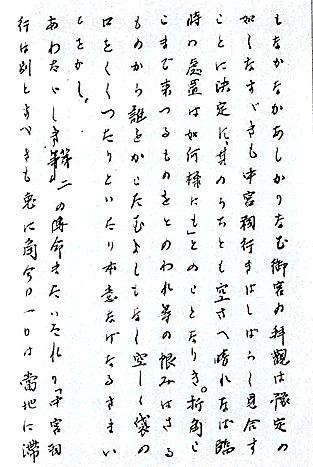 もなかなかあしかりなむ御宮の拝観は予定の
如くなすべきも中宮祠行きはしばらく見合す
ことに決定に其のうちとも空さへ晴れなば臨
時の処置は如何様にも」とのことなりき。折角こ
こまで来つるものをとのわれ等の恨みはさる
ものから誰をかこたむよしもなく空しく袋の
口をくくつたりといたり本意なげなるさまい
とをかし。
あわたゞしき第二の伝命またいたれり「中宮祠
行は別とすべきも兎に角今日一日は当地に滞